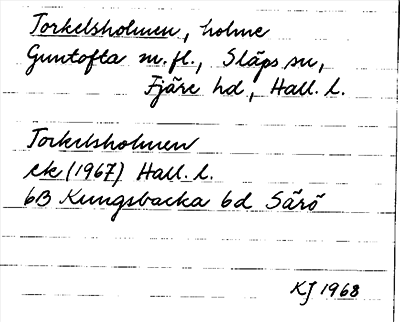 Torkelsholmen, holme
Guntofta m.fl., Släps sn,
Fjäre hd, Hall. l.
Torkelsholmen
ek (1967) Hall. l.
6B Kungsbacka 6d Särö
KJ 1968